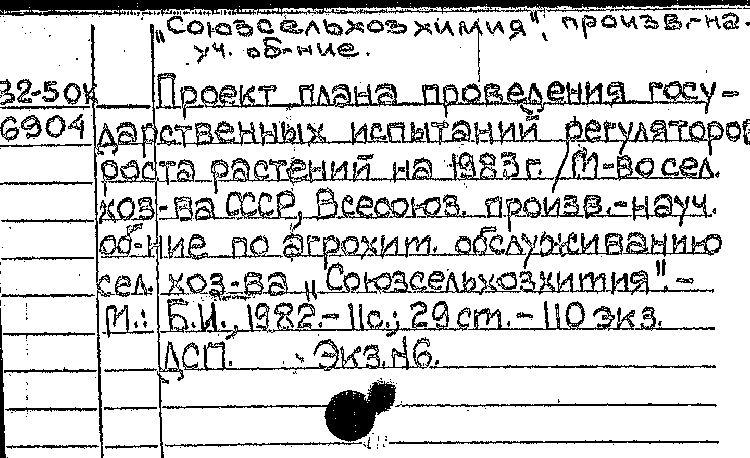 „Союзсельхозхимия", произв.-на-
уч. об-ние.
82-50к Проект плана проведения госу-
6904 дарственных испытаний регуляторов
роста растений на 1983 г. / М-во сел.
хоз-ва СССР, Всесоюз. произв.-науч.
об-ние по агрохим. обслуживанию
сел. хоз-ва „Союзсельхозхимия". -
М.: Б.И., 1982. - 11 с.; 29 см. - 110 экз.
ДСП. Экз. N6.